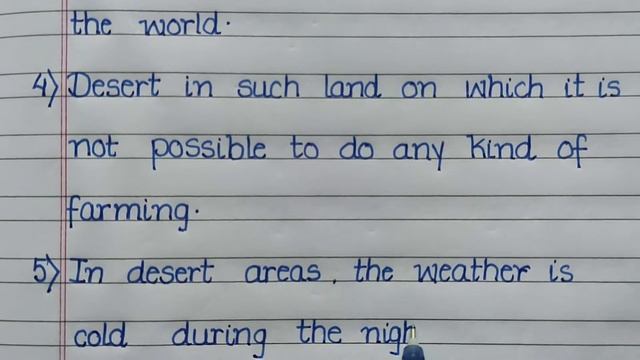 the world.
4) Desert in such land on which it is
not possible to do any kind of
farming.
5) In desert areas, the weather is
cold during the nigh